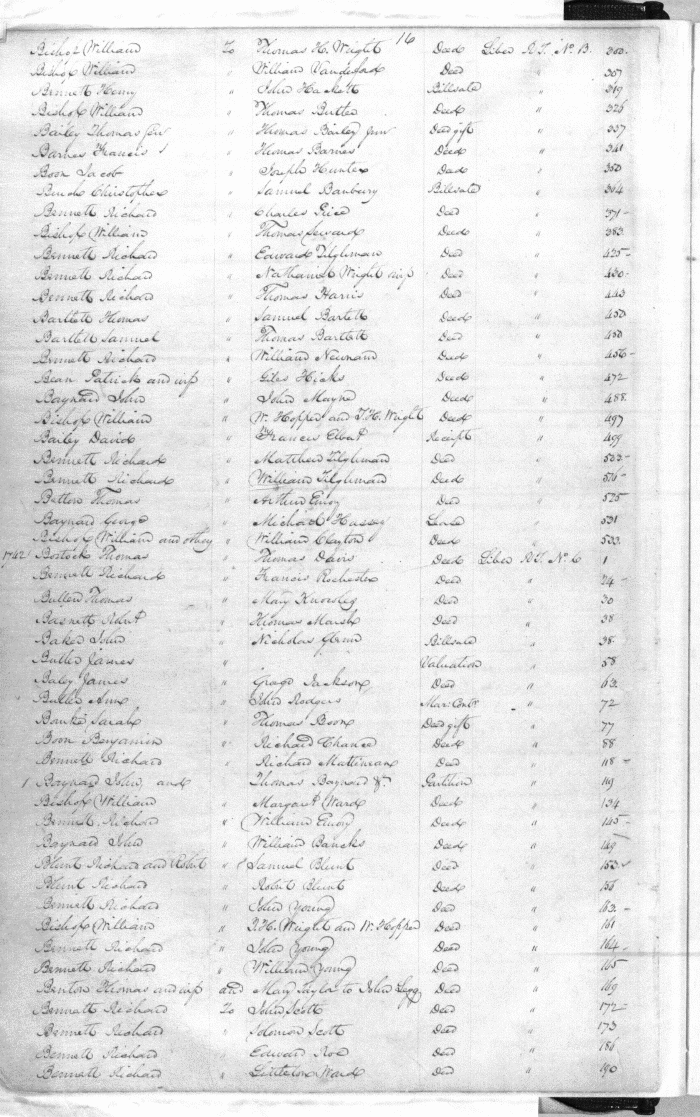 16
Bishop William To Thomas H. Wright Deed Liber R.T. No. B. 300
Bishop William " William Vandeford Deed " 307
Bennett Henry " John Hackett Billsale " 319
Bishop William " Thomas Butler Deed " 326
Bailey Thomas Senr " Thomas Bailey Junr Deed gift " 337
Barnes Francis " Thomas Barnes Deed " 341
Boon Jacob " Joseph Hunter Deed " 350
Christopher " Samuel Banbery Billsale " 364
Bennett Richard " Charles Price Deed " 371
Bishop William " Thomas Seward Deed " 383
Bennett Richard " Edward Tilghman Deed " 425
Bennett Richard " Nathaniel Wright Deed " 430
Bennett Richard " Thomas Harris Deed " 443
Bartlett Thomas " Samuel Bartlett Deed " 450
Bartlett Samuel " Thomas Bartlett Deed " 450
Bennett Richard " William Newnam Deed " 456
Bean Patrick and wife " Giles Hicks Deed " 472
Baynard John " John Mayne Deed " 488
Bishop William " W. Hopper and T.H. Wright Deed " 497
Bailey David " Francis Elbert Receipt " 499
Bennett Richard " Matthew Tilghman Deed "
Bennett Richard " William Tilghman Deed "
Button Thomas " Arthur Emory Deed " 525
Baynard George " Michael Hussey " 531
Bishop William and " William Clayton Deed " 533
1742 Bostock Thomas " Thomas Davis Deed Liber R.T. No. C 1
Bennett Richard " Francis Rochester Deed " 24
Butler Thomas " Mary Knowsley Deed " 30
Basnett Robert " Thomas Marsh Deed " 38
Baker John " Nicholas Glenn Billsale " 38
Butler James " Valuation " 58
Baley James " George Jackson Deed " 63
Butler Ann " John Rodgers Mar: Contr " 72
Banks Sarah " Thomas Boon Deed gift " 77
Boon Benjamin " Richard Chance Deed " 88
Bennett Richard " Richard Deed " 118
Baynard John and Thomas Baynard &c. Partition " 119
Bishop William " Margaret Ward Deed " 134
Bennett Richard " William Emory Deed " 145
Baynard John " William Bancks Deed " 149
Blunt Richard and Robert " Samuel Blunt Deed " 153
Blunt Richard " Robert Blunt Deed " 156
Bennett Richard " John Young Deed "
Bishop William " T.H. Wright and W. Hopper Deed " 161
Bennett Richard " John Young Deed " 164
Bennett Richard " William Young Deed " 165
Benton Thomas and wife and Mary Taylor to John Legg Deed " 169
Bennett Richard To John Scott Deed " 172
Bennett Richard " Solomon Scott Deed " 173
Bennett Richard " Edward Roe Deed " 186
Bennett Richard " Littleton Ward Deed " 190